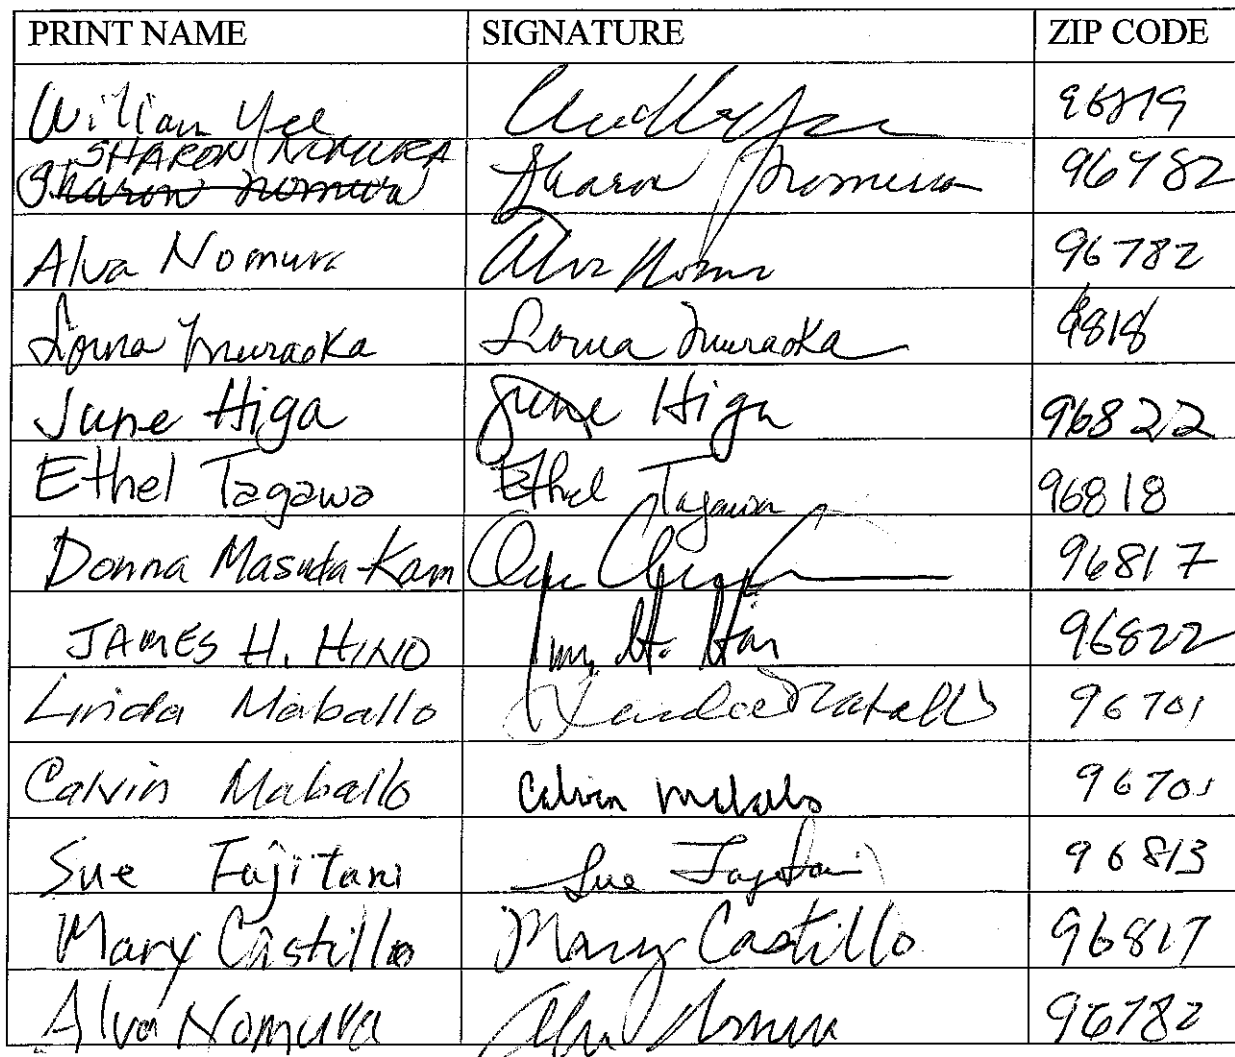 PRINT NAME SIGNATURE ZIP CODE
William Yee 96819
SHARON NOMURA
Sharon Nomura Sharon Nomura 96782
Alva Nomura Alva Nomura 96782
Lorna Muraoka Lorna Muraoka 9818
June Higa June Higa 96822
Ethel Tagawa Ethel Tagawa 96818
Donna Masuda-Kam 96817
JAMES H. HINO 96822
Linda Maballo Linda Maballo 96701
Calvin Maballo Calvin Maballo 96701
Sue Fujitani Sue Fujitani 96813
Mary Castillo Mary Castillo 96817
Alva Nomura Alva Nomura 96782